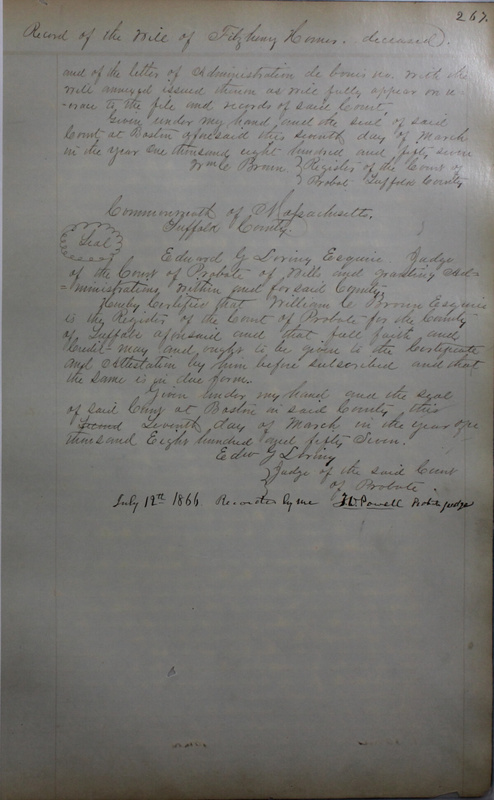 267.
Record of the Will of Fitzhenry Homer. deceased.
and of the letter of Administration de bonis non. with the
will annexed issued thereon as will fully appear on
to the file and records of said Court.
Given under my hand and the seal of said
Court at Boston aforesaid this seventh day of March
in the year one thousand eight hundred and fifty seven
Wm C Brown Register of the Court of
Probat Suffolk County
Commonwealth of Massachusetts.
Suffolk County.
Seal
Edward G Loring Esquire Judge
of the Court of Probate of Wills and granting Ad-
=ministrations within and for said County
Hereby Certifies that William C Brown Esquire
is the Register of the Court of Probate for the County
of Suffolk aforesaid and that full faith and
Credit may and ought to be given to the Certificate
and Attestation by him before subscribed and that
the same is in due form.
Given under my hand and the seal
of said Court at Boston in said County this
Seventh day of March in the year one
thousand Eight hundred and fifty Seven.
Edw G Loring
Judge of the said Court
of Probate.
July 12th 1866. Recorded by me Powell Probate Judge